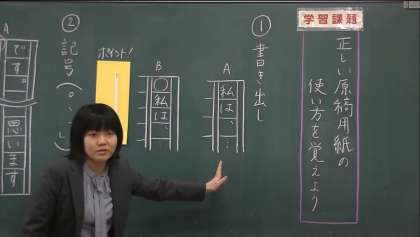 学習課題
正しい原稿用紙の
使い方を覚えよう
①書き出し
A
私は、…
B
○私は、
ポイント!
②記号(。
A
です。
思います